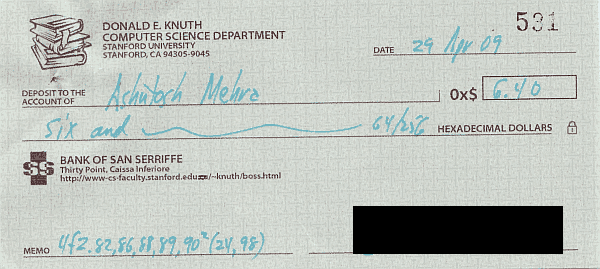 DONALD E. KNUTH
COMPUTER SCIENCE DEPARTMENT
STANFORD UNIVERSITY
STANFORD, CA 94305-9045
531
DATE 29 Apr 09
DEPOSIT TO THE
ACCOUNT OF Ashutosh Mehra 0x$ 6.40
six and 64/256 HEXADECIMAL DOLLARS
$$ BANK OF SAN SERRIFFE
Thirty Point, Caissa Inferiore
http://www-cs-faculty.stanford.edu/~knuth/boss.html
MEMO 4f2.82,86,88,89,90²(24,98)